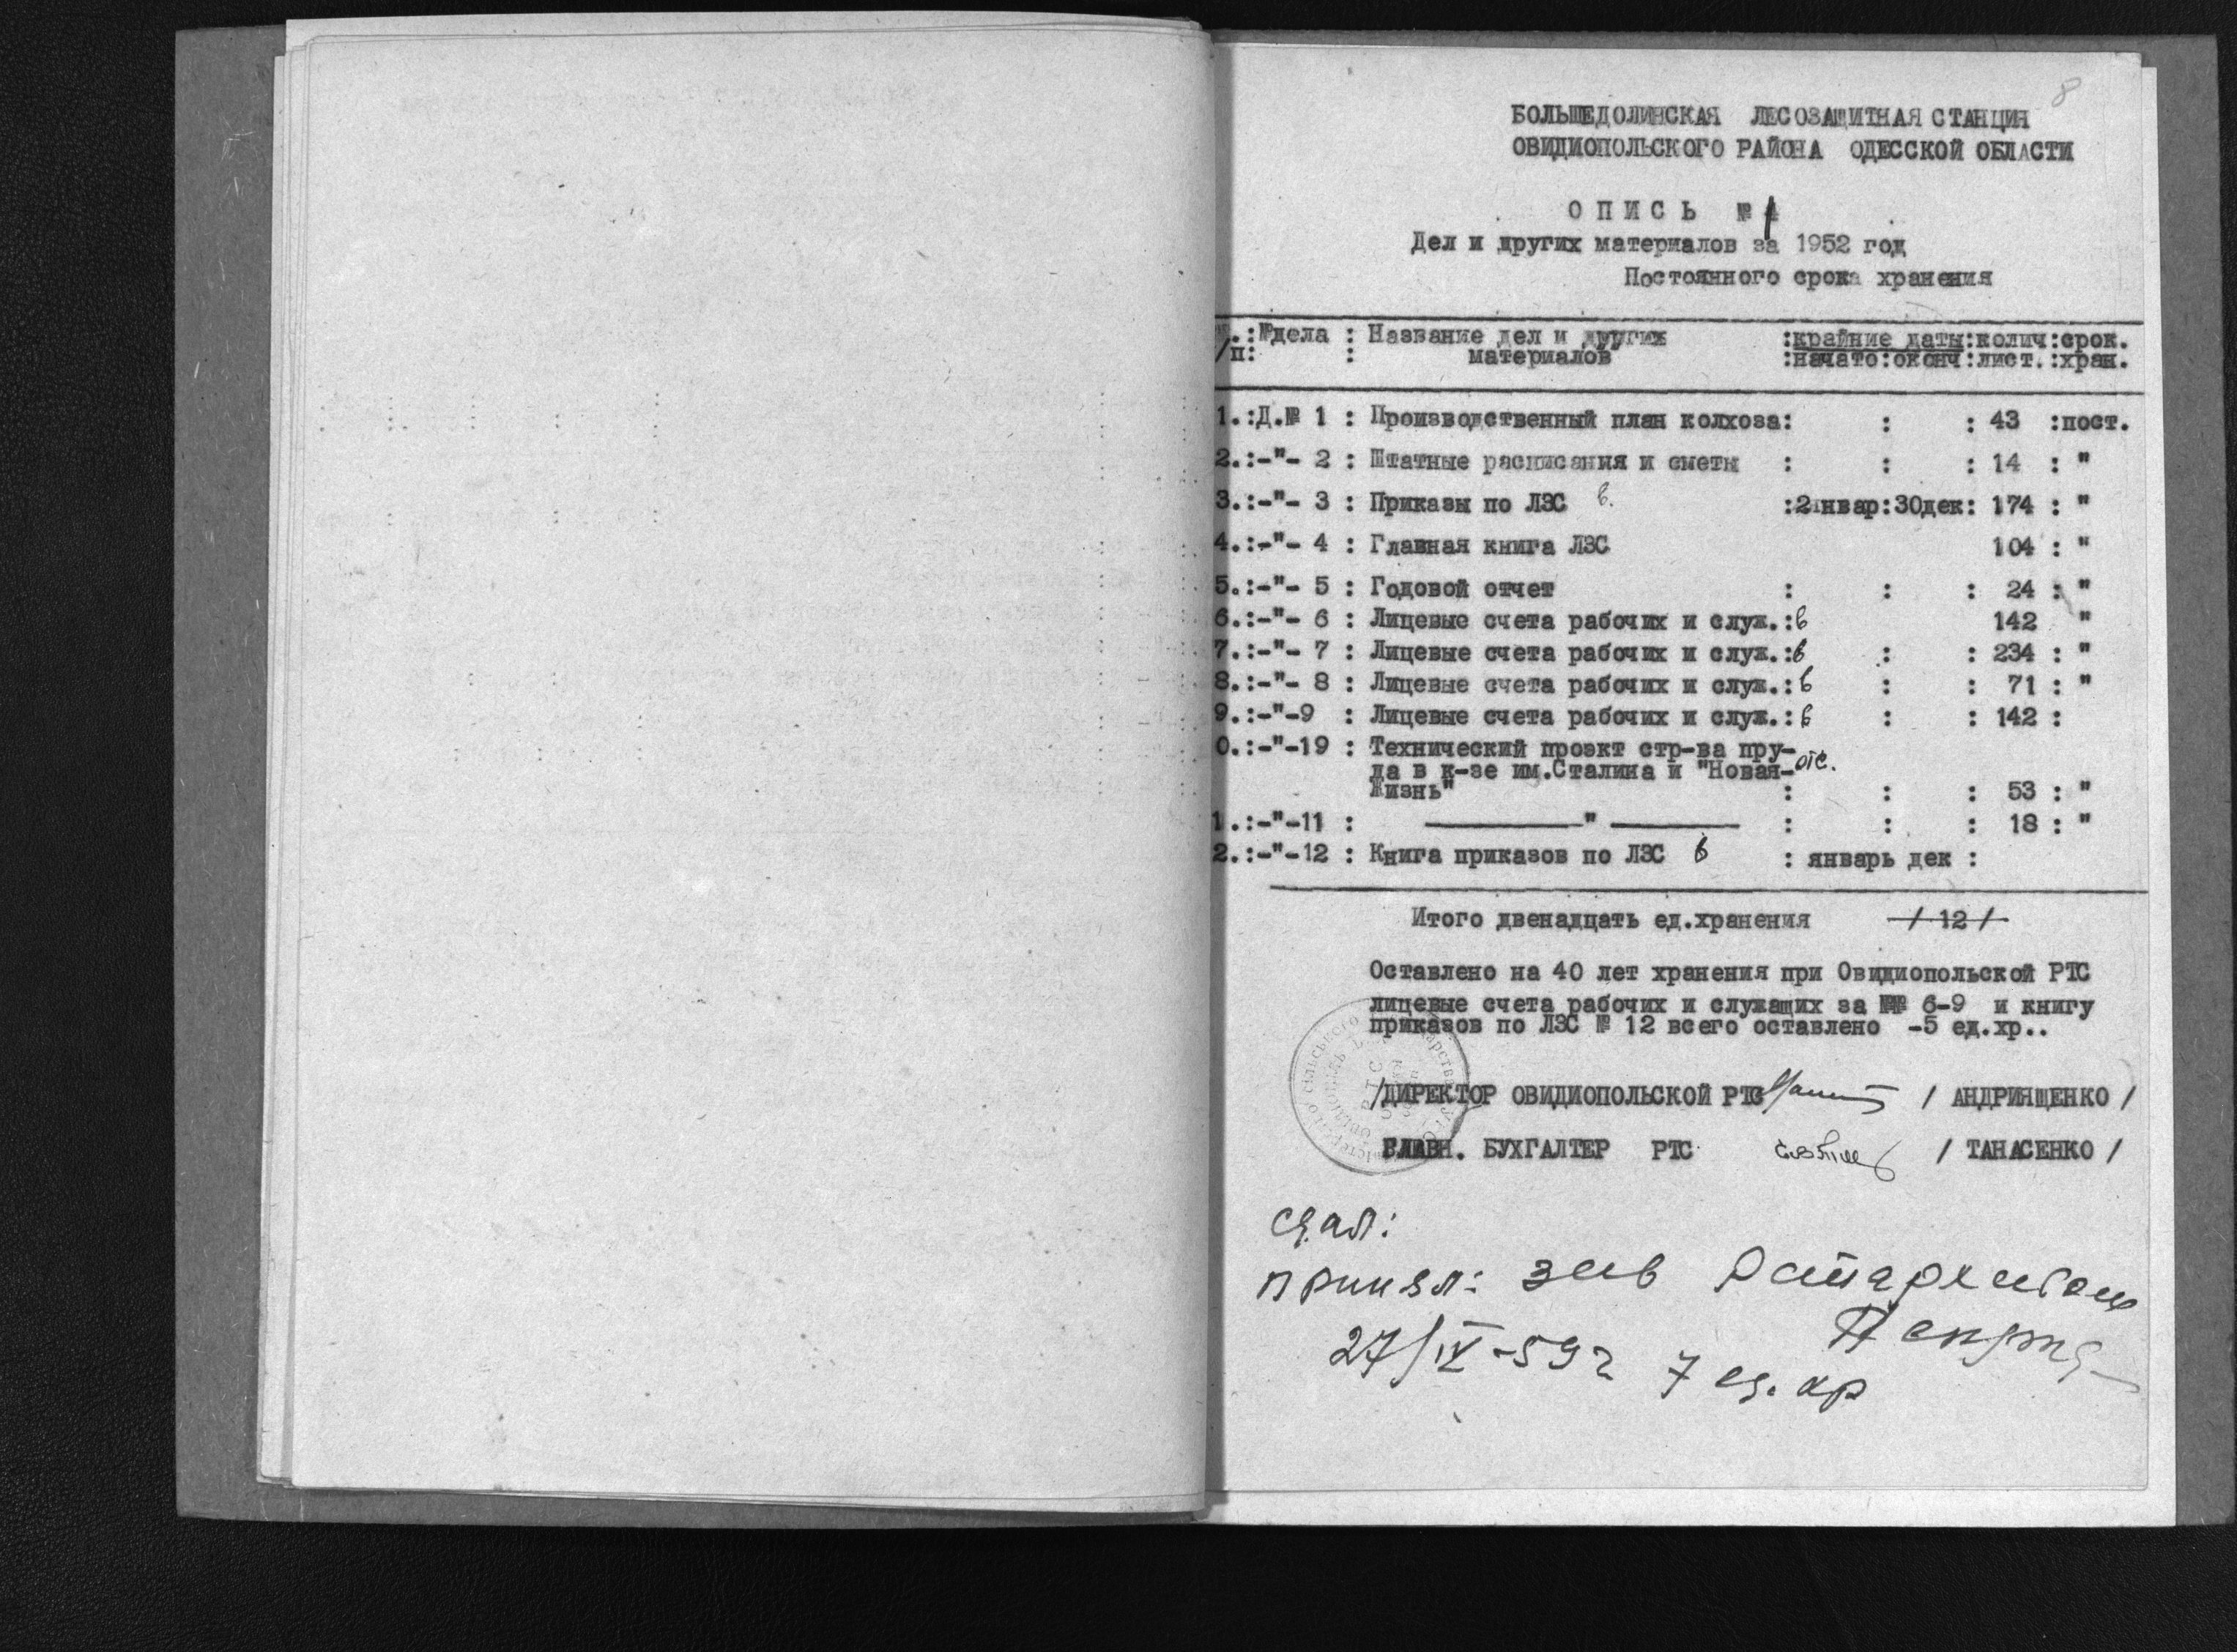 8
БОЛЬШЕДОЛИНСКАЯ ЛЕСОЗАЩИТНАЯ СТАНЦИЯ
ОВИДИОПОЛЬСКОГО РАЙОНА ОДЕССКОЙ ОБЛАСТИ
ОПИСЬ № 1
Дел и других материалов за 1952 год
Постоянного срока хранения
№.:№дела : Название дел и других :крайние даты:колич:срок.
/п: : материалов :начато:оконч:лист.:хран.
1.:Д.№ 1 : Производственный план колхоза: : : 43 :пост.
2.:-"- 2 : Штатные расписания и сметы : : : 14 : "
3.:-"- 3 : Приказы по ЛЗС в. :2январ:30дек: 174 : "
4.:-"- 4 : Главная книга ЛЗС 104 : "
5.:-"- 5 : Годовой отчет : : : 24 : "
6.:-"- 6 : Лицевые счета рабочих и служ.:в 142 "
7.:-"- 7 : Лицевые счета рабочих и служ.:в : : 234 : "
8.:-"- 8 : Лицевые счета рабочих и служ.:в : : 71 : "
9.:-"-9 : Лицевые счета рабочих и служ.:в : : 142 :
0.:-"-19 : Технический проэкт стр-ва пру-
да в к-зе им.Сталина и "Новая- отс.
Жизнь" : : : 53 : "
1.:-"-11 : " : : : 18 : "
2.:-"-12 : Книга приказов по ЛЗС в : январь дек :
Итого двенадцать ед.хранения / 12 /
Оставлено на 40 лет хранения при Овидиопольской РТС
лицевые счета рабочих и служащих за №№ 6-9 и книгу
приказов по ЛЗС № 12 всего оставлено -5 ед.хр..
/ДИРЕКТОР ОВИДИОПОЛЬСКОЙ РТС / АНДРИЯЩЕНКО /
ГЛАВН. БУХГАЛТЕР РТС / ТАНАСЕНКО /
сдал:
принял: зав
27/IV-59г 7 ед. хр